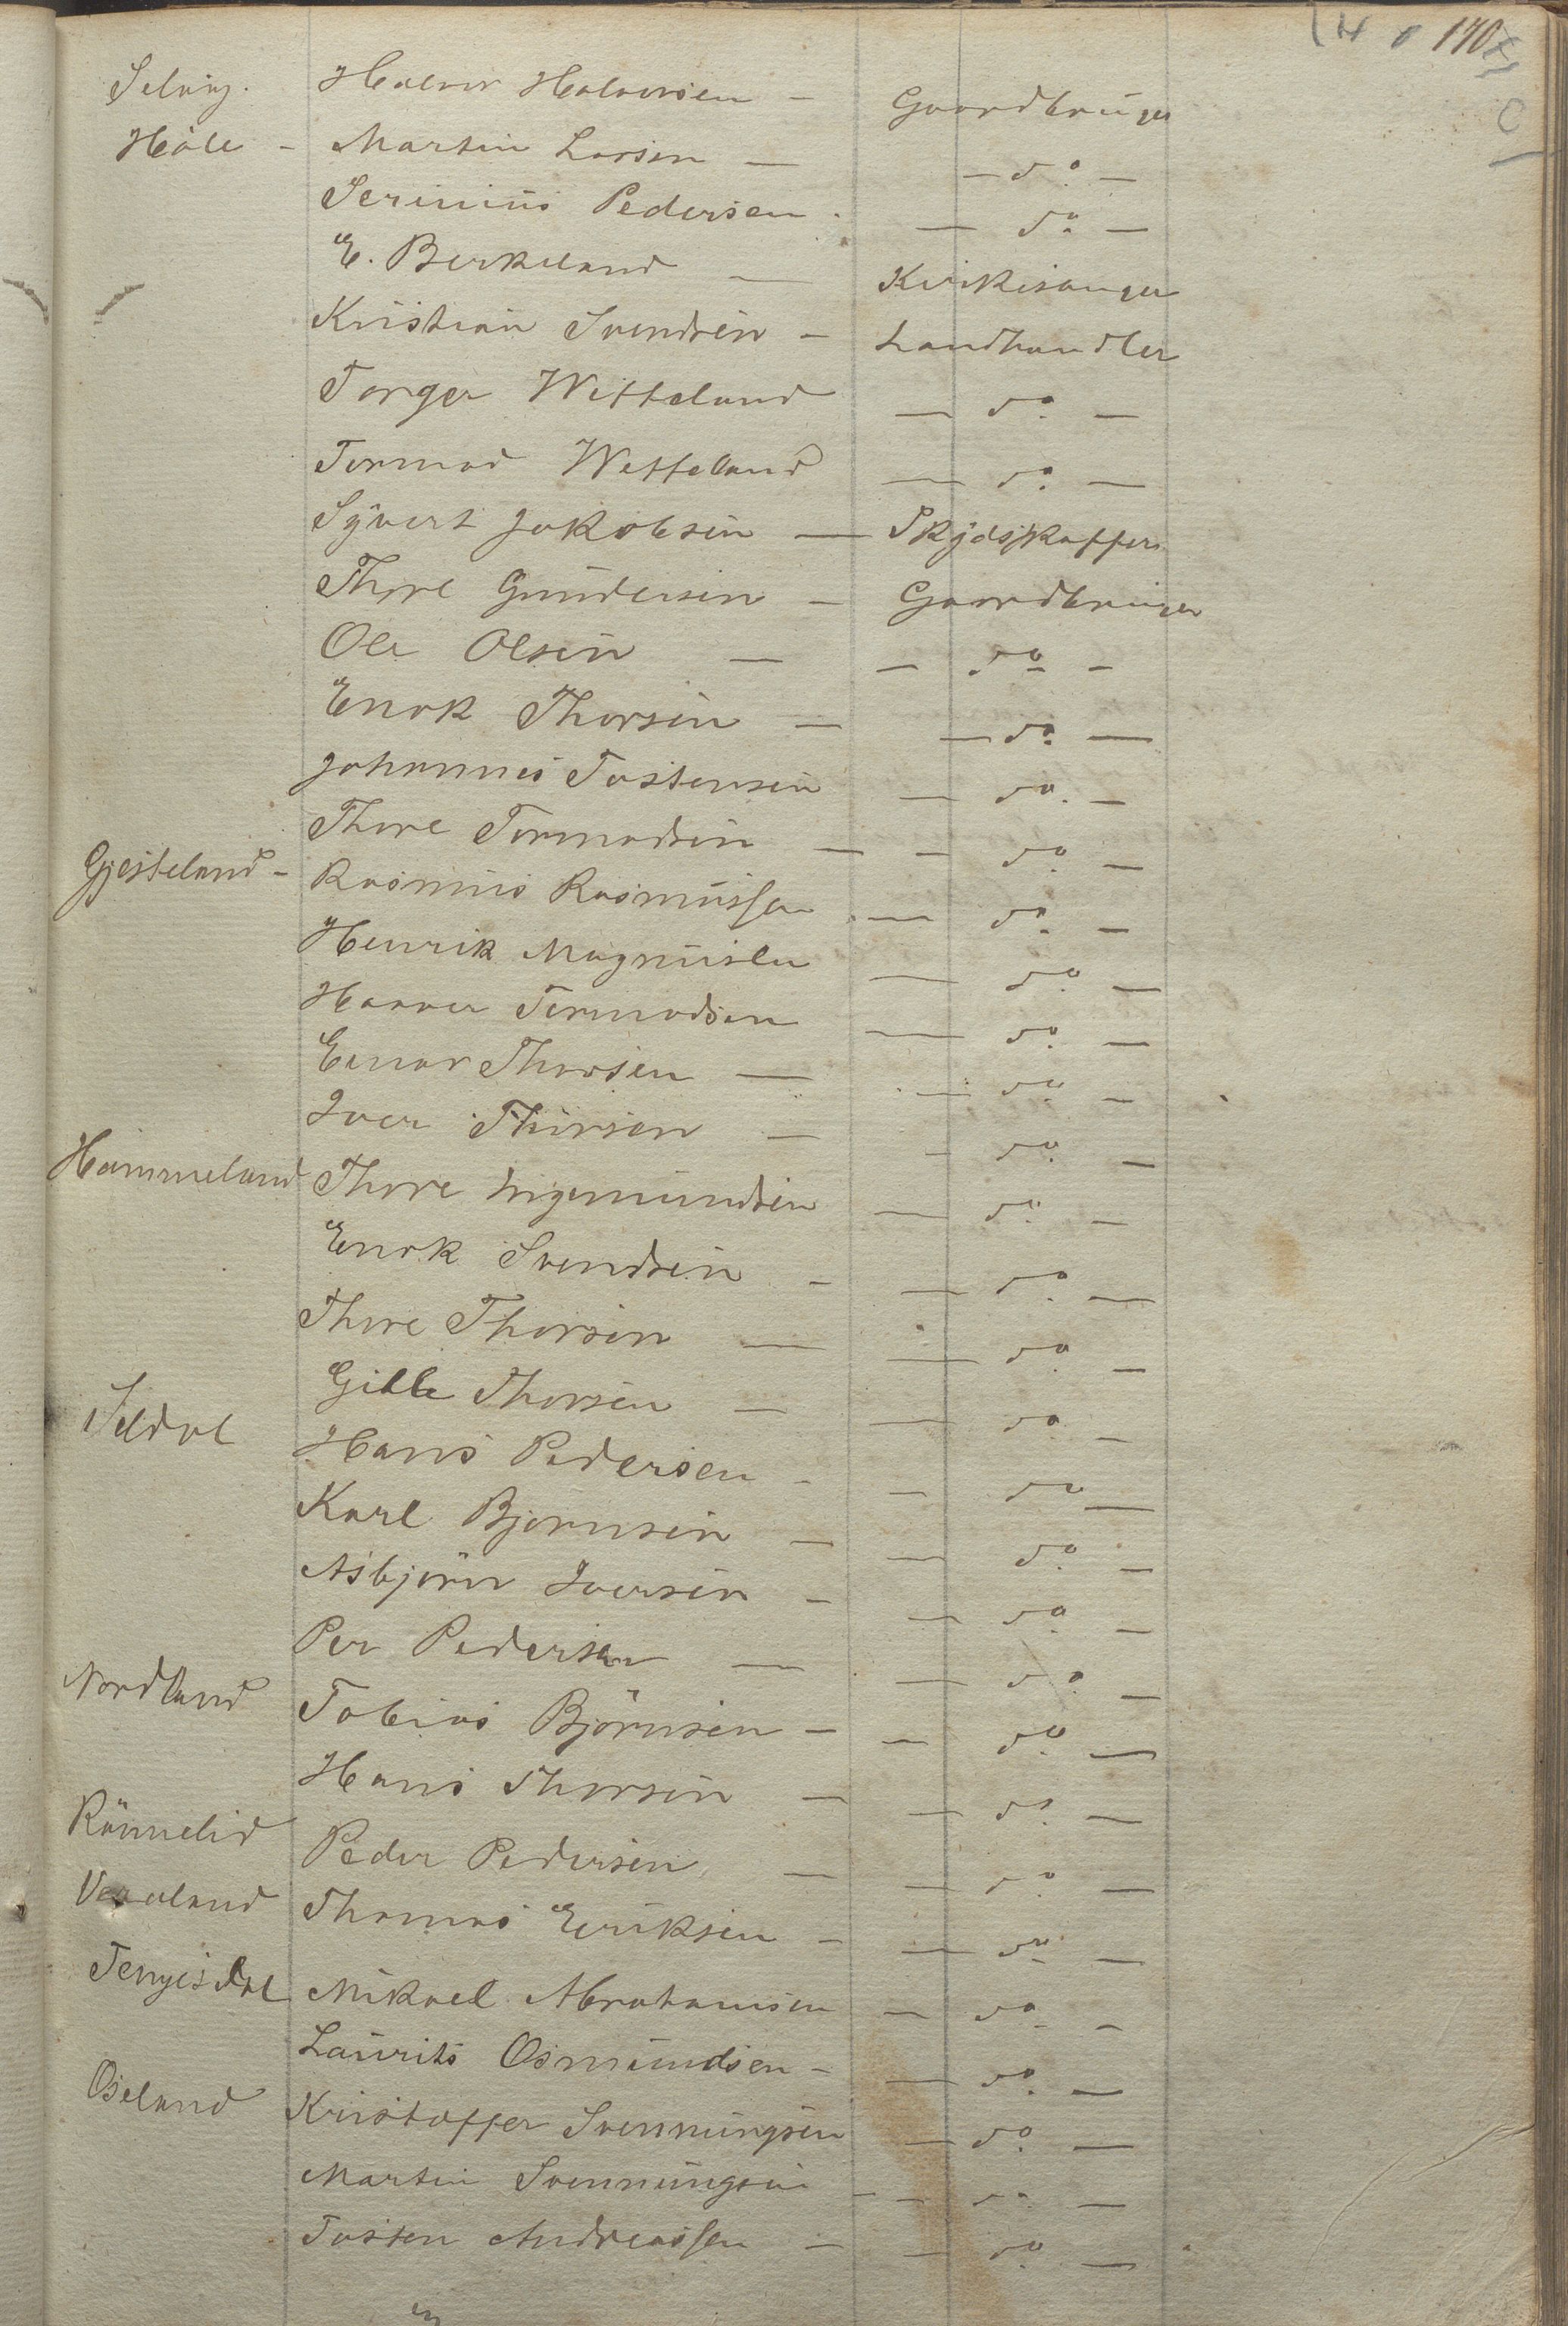 170
Selvig. Halvor Halvorsen — Gaardbruger
Høle - Martin Larsen — — do —
Serinius Pedersen . — do —
E. Berkeland — Kirkesanger
Kristian Svendsen — Landhandler
Torger Wetteland — do —
Tormod Wetteland — do —
Sÿvert Jakobsen — Skjdsskaffer
Thore Gundersen — Gaardbruger
Ole Olsen — — do —
Enok Thorsen — — do —
Johannes Tostensen — do —
Thore Tormodsen — — do —
Gjesteland - Rasmus Rasmussen — do —
Henrik Magnusen — do —
Haaver Tormodsen — do —
Einar Thorsen — — do —
Iver Thorsen — - do —
Hammeland Thore Ingemundsen — do —
Enok Svendsen - — do —
Thore Thorsen — — do —
Gitle Thorsen — — do —
Seldal Hans Pedersen - — do —
Karl Bjornsen — — do —
Asbjörn Iversen — — do —
Per Pedersen — — do —
Nordland Tobias Björnsen — — do —
Hans Thorsen — — do —
Rönnelid Peder Pedersen — — do —
Thomas Eriksen — — do —
Tengesdal Mikael Abrahamsen — do —
Laurits Osmundsen - — do —
Oseland Kristoffer Svenningsen — do —
Martin Svenningsen - — do —
Tosten Andreassen — — do —